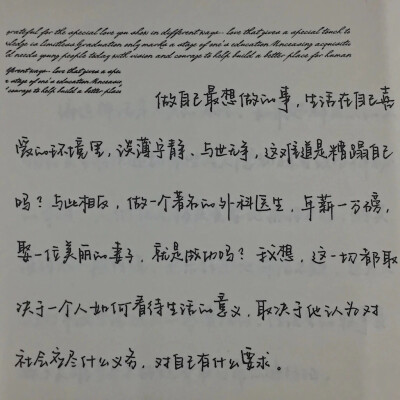 grateful for the special love you show in different ways - love that gives a special touch to
ledge is limitless Graduation only marks a stage of one's education Unceasing acquisiti
ld needs young people today with vision and courage to help build a better place for human
fferent ways - love that gives a spe
a stage of one's education Unceasin
courage to help build a better place
做自己最想做的事，生活在自己喜
爱的环境里，淡薄宁静、与世无争，这难道是糟蹋自己
吗？与此相反，做一个著名的外科医生，年薪一万磅，
娶一位美丽的妻子，就是成功吗？我想，这一切都取
决于一个人如何看待生活的意义，取决于他认为对
社会应尽什么义务，对自己有什么要求。